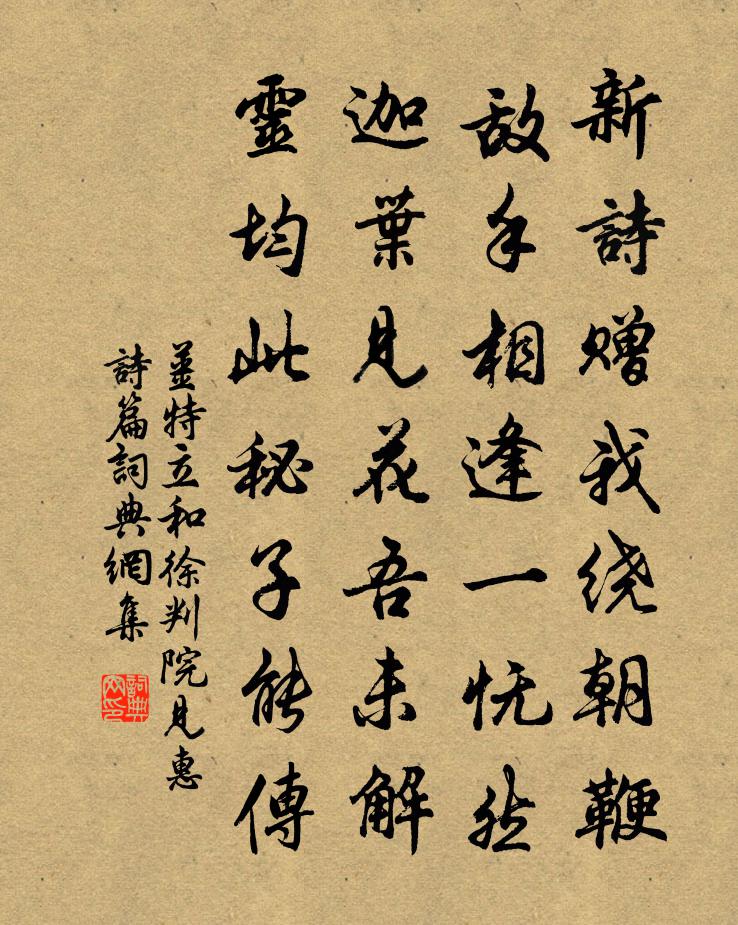 新詩贈我绕朝鞭
敌手相逢一怃然
迦葉見花吾未解
靈均此秘子能傳
姜特立和徐判院見惠
詩篇詞典網集
詞典网印